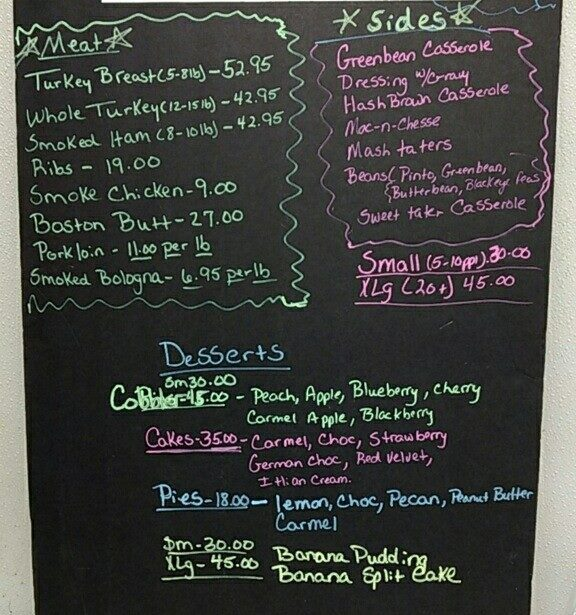 Meat
Turkey Breast (5-8lb) - 52.95
Whole Turkey (12-15lb) - 42.95
Smoked Ham (8-10lb) - 42.95
Ribs - 19.00
Smoke Chicken - 9.00
Boston Butt - 27.00
Pork loin - 11.00 per lb
Smoked Bologna - 6.95 per lb
Sides
Greenbean Casserole
Dressing w/Gravy
HashBrown Casserole
Mac-n-Chesse
Mash taters
Beans (Pinto, Greenbean,
Butterbean, Blackeye Peas)
Sweet tater Casserole
Small (5-10ppl) 30.00
XLg (20+) 45.00
Desserts
Sm 30.00
45.00 - Peach, Apple, Blueberry, Cherry
Carmel Apple, Blackberry
Cakes - 35.00 - Carmel, Choc, Strawberry
German Choc, Red Velvet,
Itlian Cream.
Pies - 18.00 - lemon, Choc, Pecan, Peanut Butter
Carmel
Sm - 30.00 Banana Pudding
XLg - 45.00 Banana Split Cake